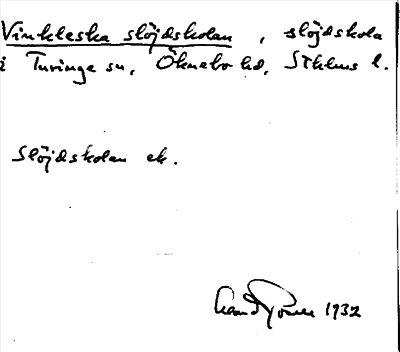 Vinkleska slöjdskolan, slöjdskola
i Turinge sn, Öknebo hd, Sthlms l.
Slöjdskolan ek.
1932